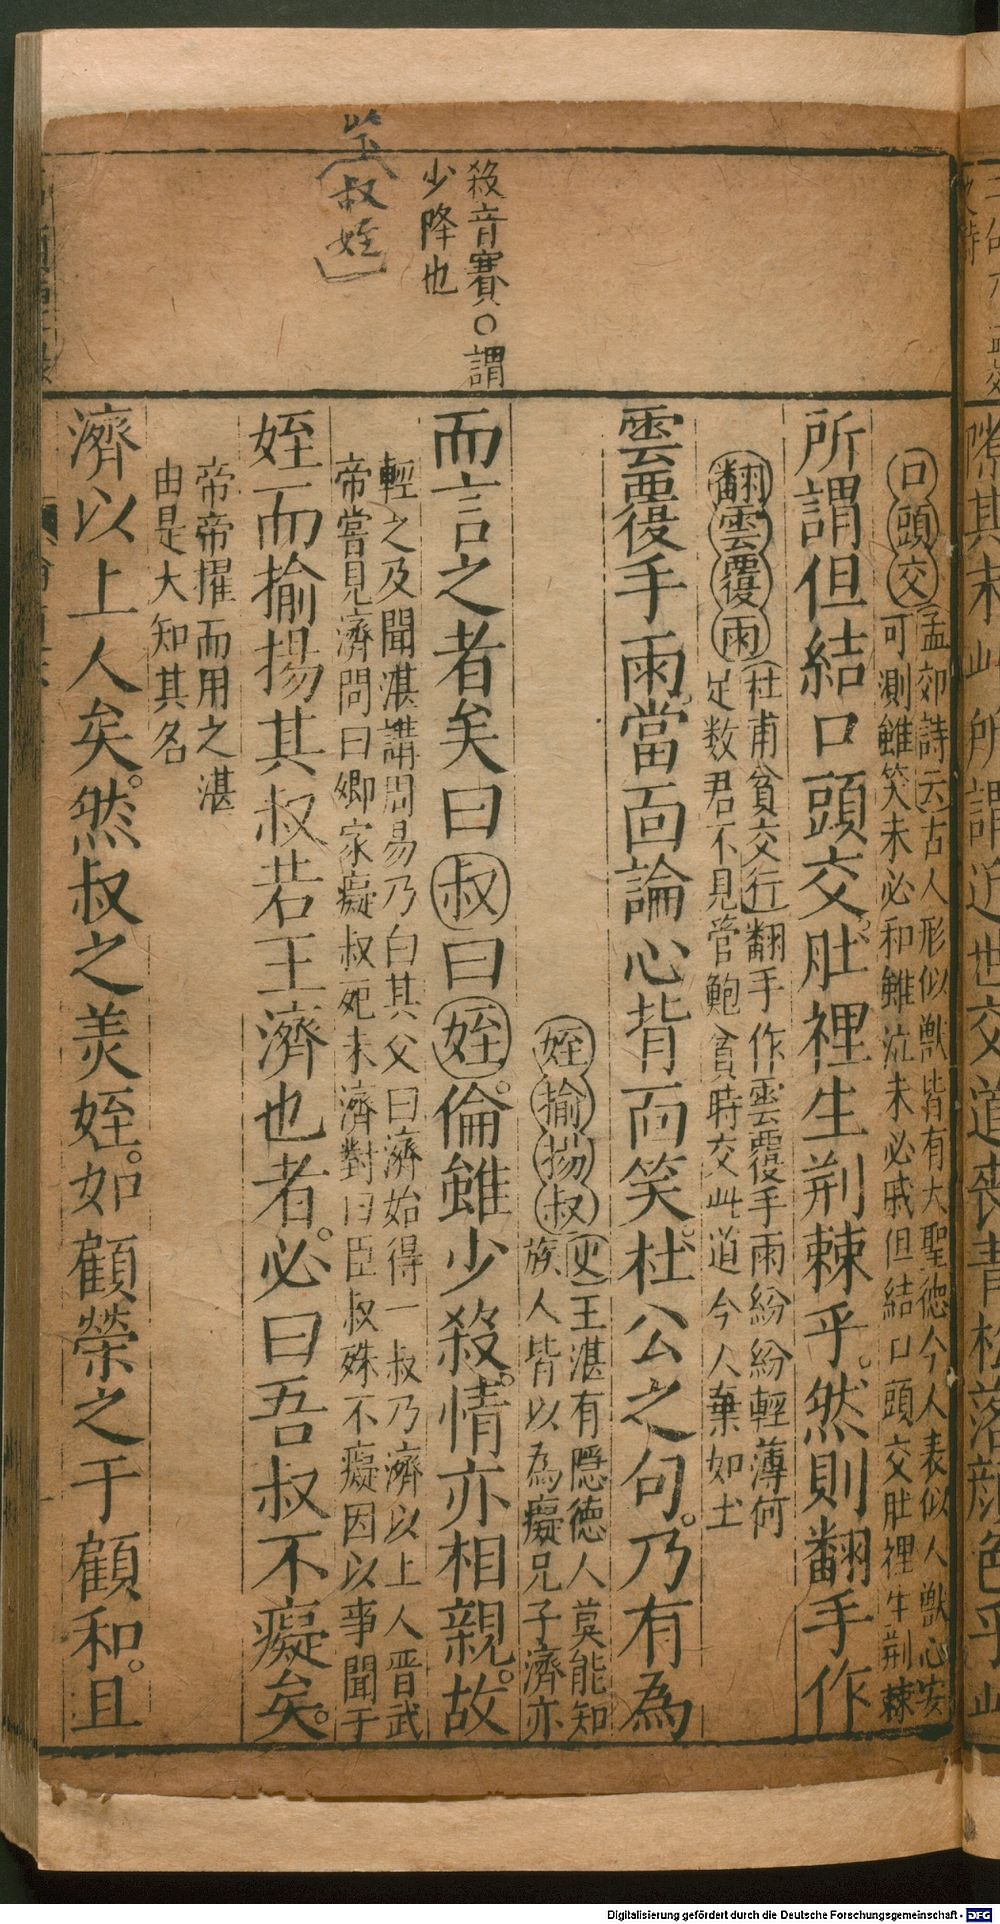 殺音賽○謂
少降也
叔姪
口頭交 孟郊詩云古人形似獣皆有大聖徳今人表似人獣心安
可測雖笑未必和雖泣未必戚但結口頭交肚裡生荆棘
所謂但結口頭交肚裡生荆棘乎。然則翻手作
翻雲覆雨 杜甫貧交行翻手作雲覆手雨紛紛輕薄何
足数君不見管鮑貧時交此道今人棄如土
雲覆手雨當面論心背面笑。杜公之句。乃有為
姪揄揚叔 史王湛有隠徳人莫能知
族人皆以為癡兄子濟亦
而言之者矣曰叔曰姪。倫雖少殺。情亦相親。故
輕之及聞湛講周易乃白其父曰濟始得一叔乃濟以上人晋武
帝嘗見濟問曰卿家癡叔死未濟對曰臣叔殊不癡因以事聞于
姪而揄揚其叔若王濟也者。必曰吾叔不癡矣。
帝帝擢而用之湛
由是大知其名
濟以上人矣。然叔之羙姪。如顧榮之于顧和。且
Digitalisierung gefördert durch die Deutsche Forschungsgemeinschaft - DFG